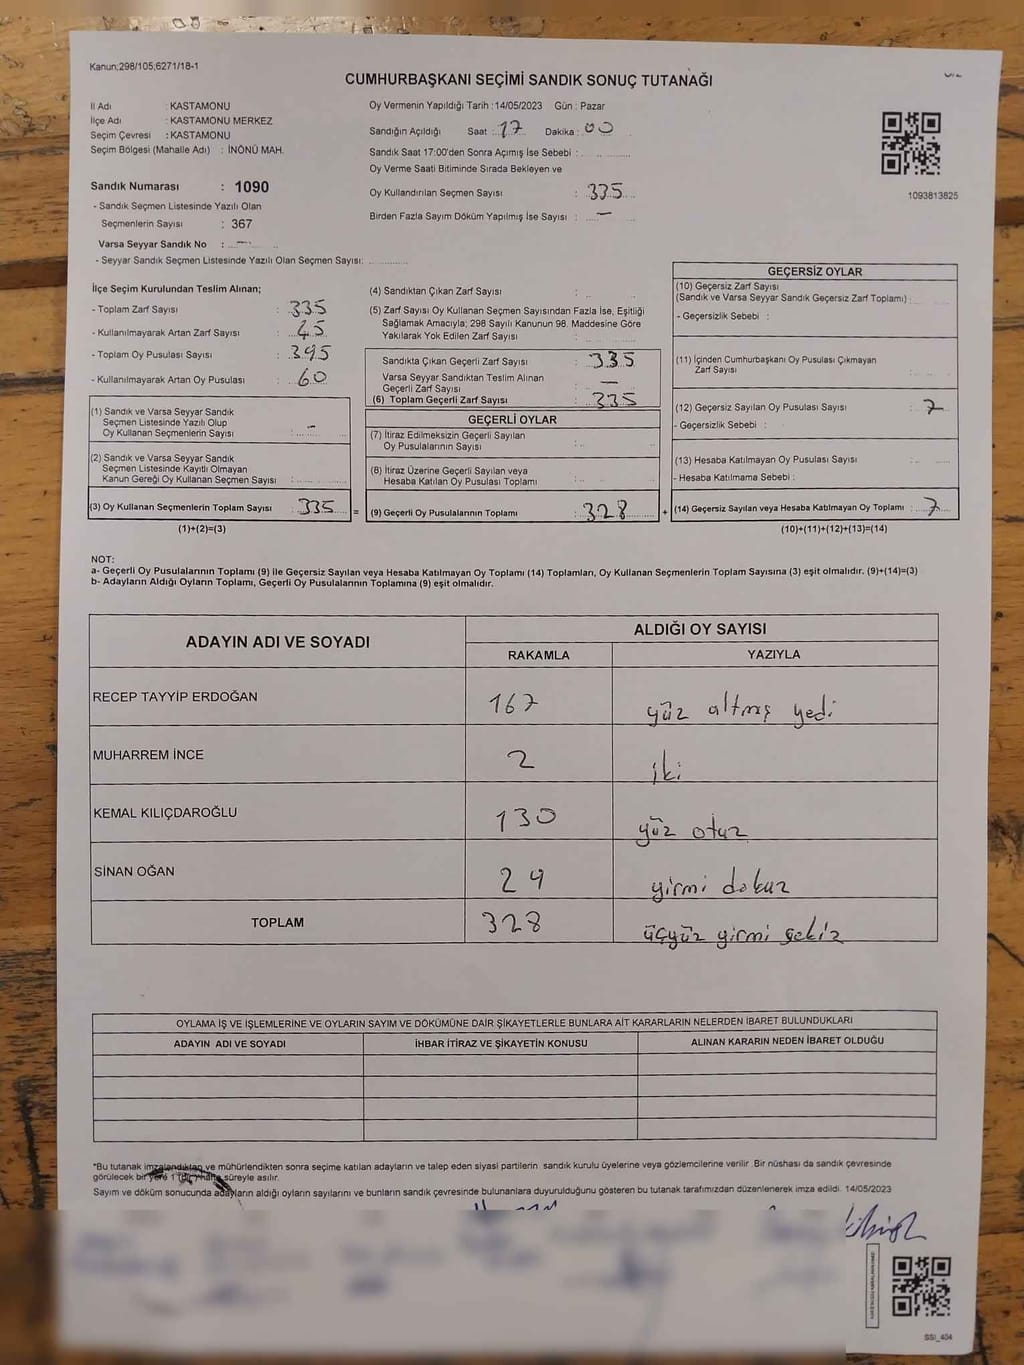 Kanun;298/105;6271/18-1
CUMHURBAŞKANI SEÇİMİ SANDIK SONUÇ TUTANAĞI
İl Adı : KASTAMONU
İlçe Adı : KASTAMONU MERKEZ
Seçim Çevresi : KASTAMONU
Seçim Bölgesi (Mahalle Adı) : İNÖNÜ MAH.
Oy Vermenin Yapıldığı Tarih : 14/05/2023 Gün : Pazar
Sandığın Açıldığı Saat : 17 Dakika : 00
Sandık Saat 17:00'den Sonra Açımış İse Sebebi :
Oy Verme Saati Bitiminde Sırada Bekleyen ve
Oy Kullandırılan Seçmen Sayısı : 335
Birden Fazla Sayım Döküm Yapılmış İse Sayısı : —
1093813825
Sandık Numarası : 1090
- Sandık Seçmen Listesinde Yazılı Olan
Seçmenlerin Sayısı : 367
Varsa Seyyar Sandık No : —
- Seyyar Sandık Seçmen Listesinde Yazılı Olan Seçmen Sayısı:
İlçe Seçim Kurulundan Teslim Alınan;
- Toplam Zarf Sayısı : 335
- Kullanılmayarak Artan Zarf Sayısı : 45
- Toplam Oy Pusulası Sayısı : 395
- Kullanılmayarak Artan Oy Pusulası : 60
(1) Sandık ve Varsa Seyyar Sandık
Seçmen Listesinde Yazılı Olup
Oy Kullanan Seçmenlerin Sayısı : —
(2) Sandık ve Varsa Seyyar Sandık
Seçmen Listesinde Kayıtlı Olmayan
Kanun Gereği Oy Kullanan Seçmen Sayısı :
(3) Oy Kullanan Seçmenlerin Toplam Sayısı : 335 =
(1)+(2)=(3)
(4) Sandıktan Çıkan Zarf Sayısı :
(5) Zarf Sayısı Oy Kullanan Seçmen Sayısından Fazla İse, Eşitliği
Sağlamak Amacıyla; 298 Sayılı Kanunun 98. Maddesine Göre
Yakılarak Yok Edilen Zarf Sayısı :
Sandıkta Çıkan Geçerli Zarf Sayısı : 335
Varsa Seyyar Sandıktan Teslim Alınan
Geçerli Zarf Sayısı : —
(6) Toplam Geçerli Zarf Sayısı : 335
GEÇERLİ OYLAR
(7) İtiraz Edilmeksizin Geçerli Sayılan
Oy Pusulalarının Sayısı :
(8) İtiraz Üzerine Geçerli Sayılan veya
Hesaba Katılan Oy Pusulası Toplamı :
(9) Geçerli Oy Pusulalarının Toplamı : 328 +
GEÇERSİZ OYLAR
(10) Geçersiz Zarf Sayısı
(Sandık ve Varsa Seyyar Sandık Geçersiz Zarf Toplamı) :
- Geçersizlik Sebebi :
(11) İçinden Cumhurbaşkanı Oy Pusulası Çıkmayan
Zarf Sayısı :
(12) Geçersiz Sayılan Oy Pusulası Sayısı : 7
- Geçersizlik Sebebi :
(13) Hesaba Katılmayan Oy Pusulası Sayısı :
- Hesaba Katılmama Sebebi :
(14) Geçersiz Sayılan veya Hesaba Katılmayan Oy Toplamı : 7
(10)+(11)+(12)+(13)=(14)
NOT:
a- Geçerli Oy Pusulalarının Toplamı (9) ile Geçersiz Sayılan veya Hesaba Katılmayan Oy Toplamı (14) Toplamları, Oy Kullanan Seçmenlerin Toplam Sayısına (3) eşit olmalıdır. (9)+(14)=(3)
b- Adayların Aldığı Oyların Toplamı, Geçerli Oy Pusulalarının Toplamına (9) eşit olmalıdır.
ADAYIN ADI VE SOYADI ALDIĞI OY SAYISI
RAKAMLA YAZIYLA
RECEP TAYYİP ERDOĞAN 167 yüz altmış yedi
MUHARREM İNCE 2 iki
KEMAL KILIÇDAROĞLU 130 yüz otuz
SİNAN OĞAN 29 yirmi dokuz
TOPLAM 328 üçyüz yirmi sekiz
OYLAMA İŞ VE İŞLEMLERİNE VE OYLARIN SAYIM VE DÖKÜMÜNE DAİR ŞİKAYETLERLE BUNLARA AİT KARARLARIN NELERDEN İBARET BULUNDUKLARI
ADAYIN ADI VE SOYADI İHBAR İTİRAZ VE ŞİKAYETİN KONUSU ALINAN KARARIN NEDEN İBARET OLDUĞU
*Bu tutanak imzalandıktan ve mühürlendikten sonra seçime katılan adayların ve talep eden siyasi partilerin sandık kurulu üyelerine veya gözlemcilerine verilir. Bir nüshası da sandık çevresinde
görülecek bir yere 1 (bir) hafta süreyle asılır.
Sayım ve döküm sonucunda adayların aldığı oyların sayılarını ve bunların sandık çevresinde bulunanlara duyurulduğunu gösteren bu tutanak tarafımızdan düzenlenerek imza edildi. 14/05/2023
SSI_404